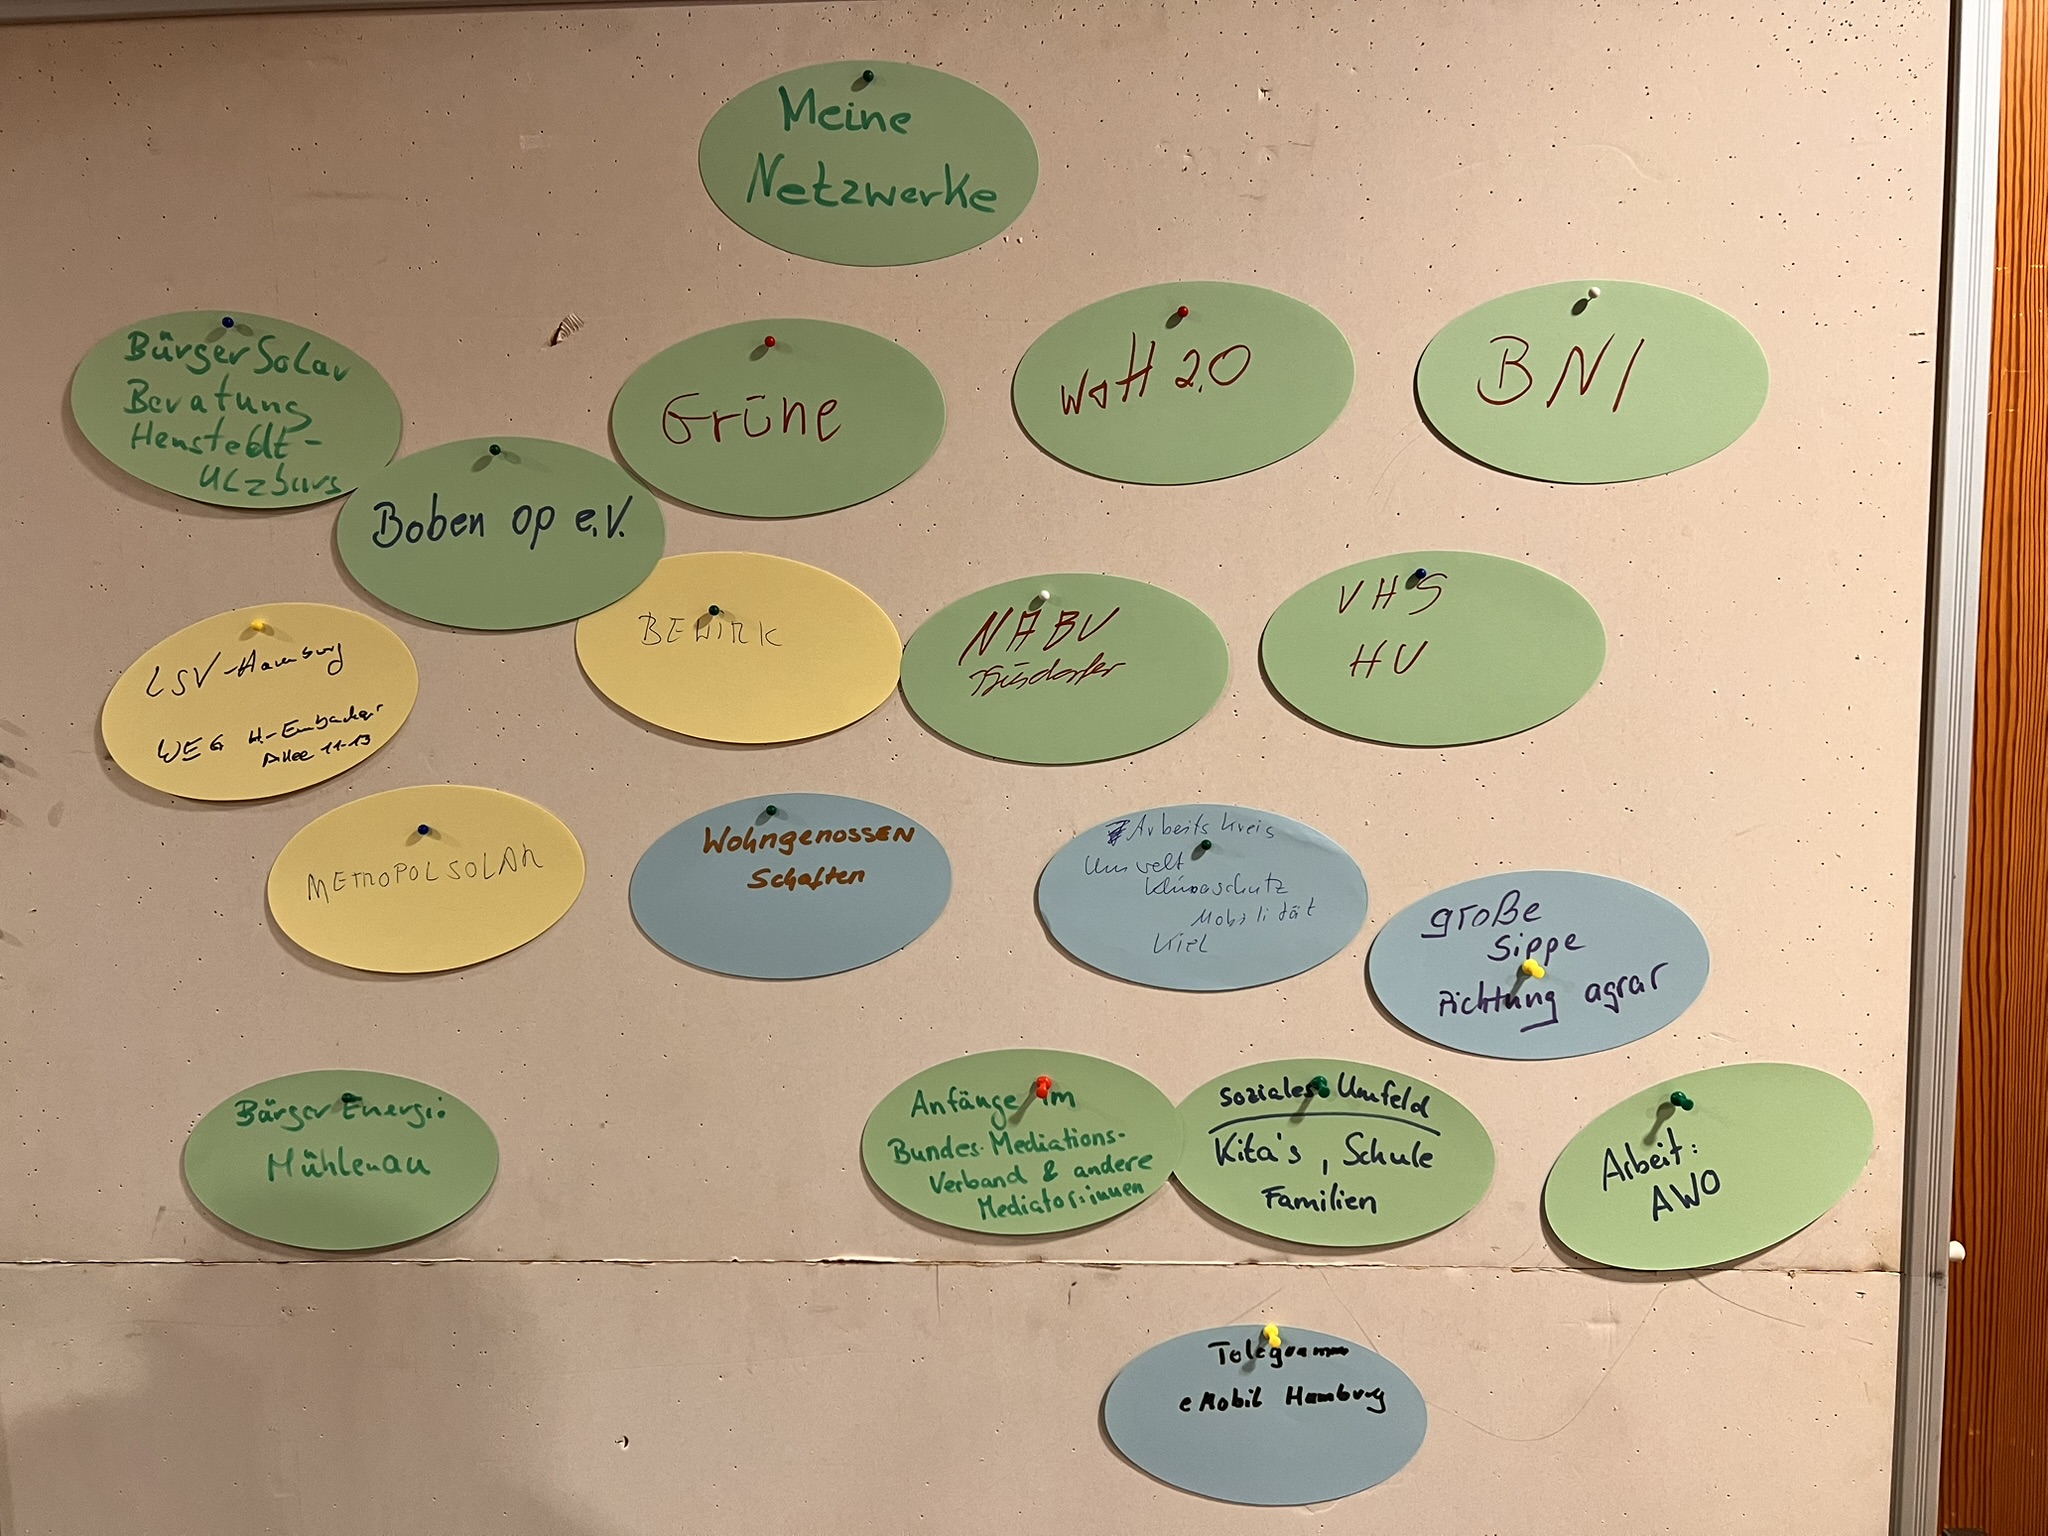 Meine
Netzwerke
Bürger Solar
Beratung
Henstedt-
Ulzburg
Boben op e.V.
Grüne
WoH 2.0
BNI
LSV-Hamburg
WEG H.-
Allee 11-13
BEWIRK
NABU
VHS
HU
METROPOLSOLAR
Wohngenossen
Schaften
Arbeitskreis
Umwelt
Klimaschutz
Mobilität
Kiel
große
Sippe
Richtung agrar
Bürger Energie
Mühlenau
Anfänge im
Bundes-Mediations-
Verband & andere
Mediator:innen
soziales Umfeld
Kita's, Schule
Familien
Arbeit:
AWO
Telegramm
eMobil Hamburg